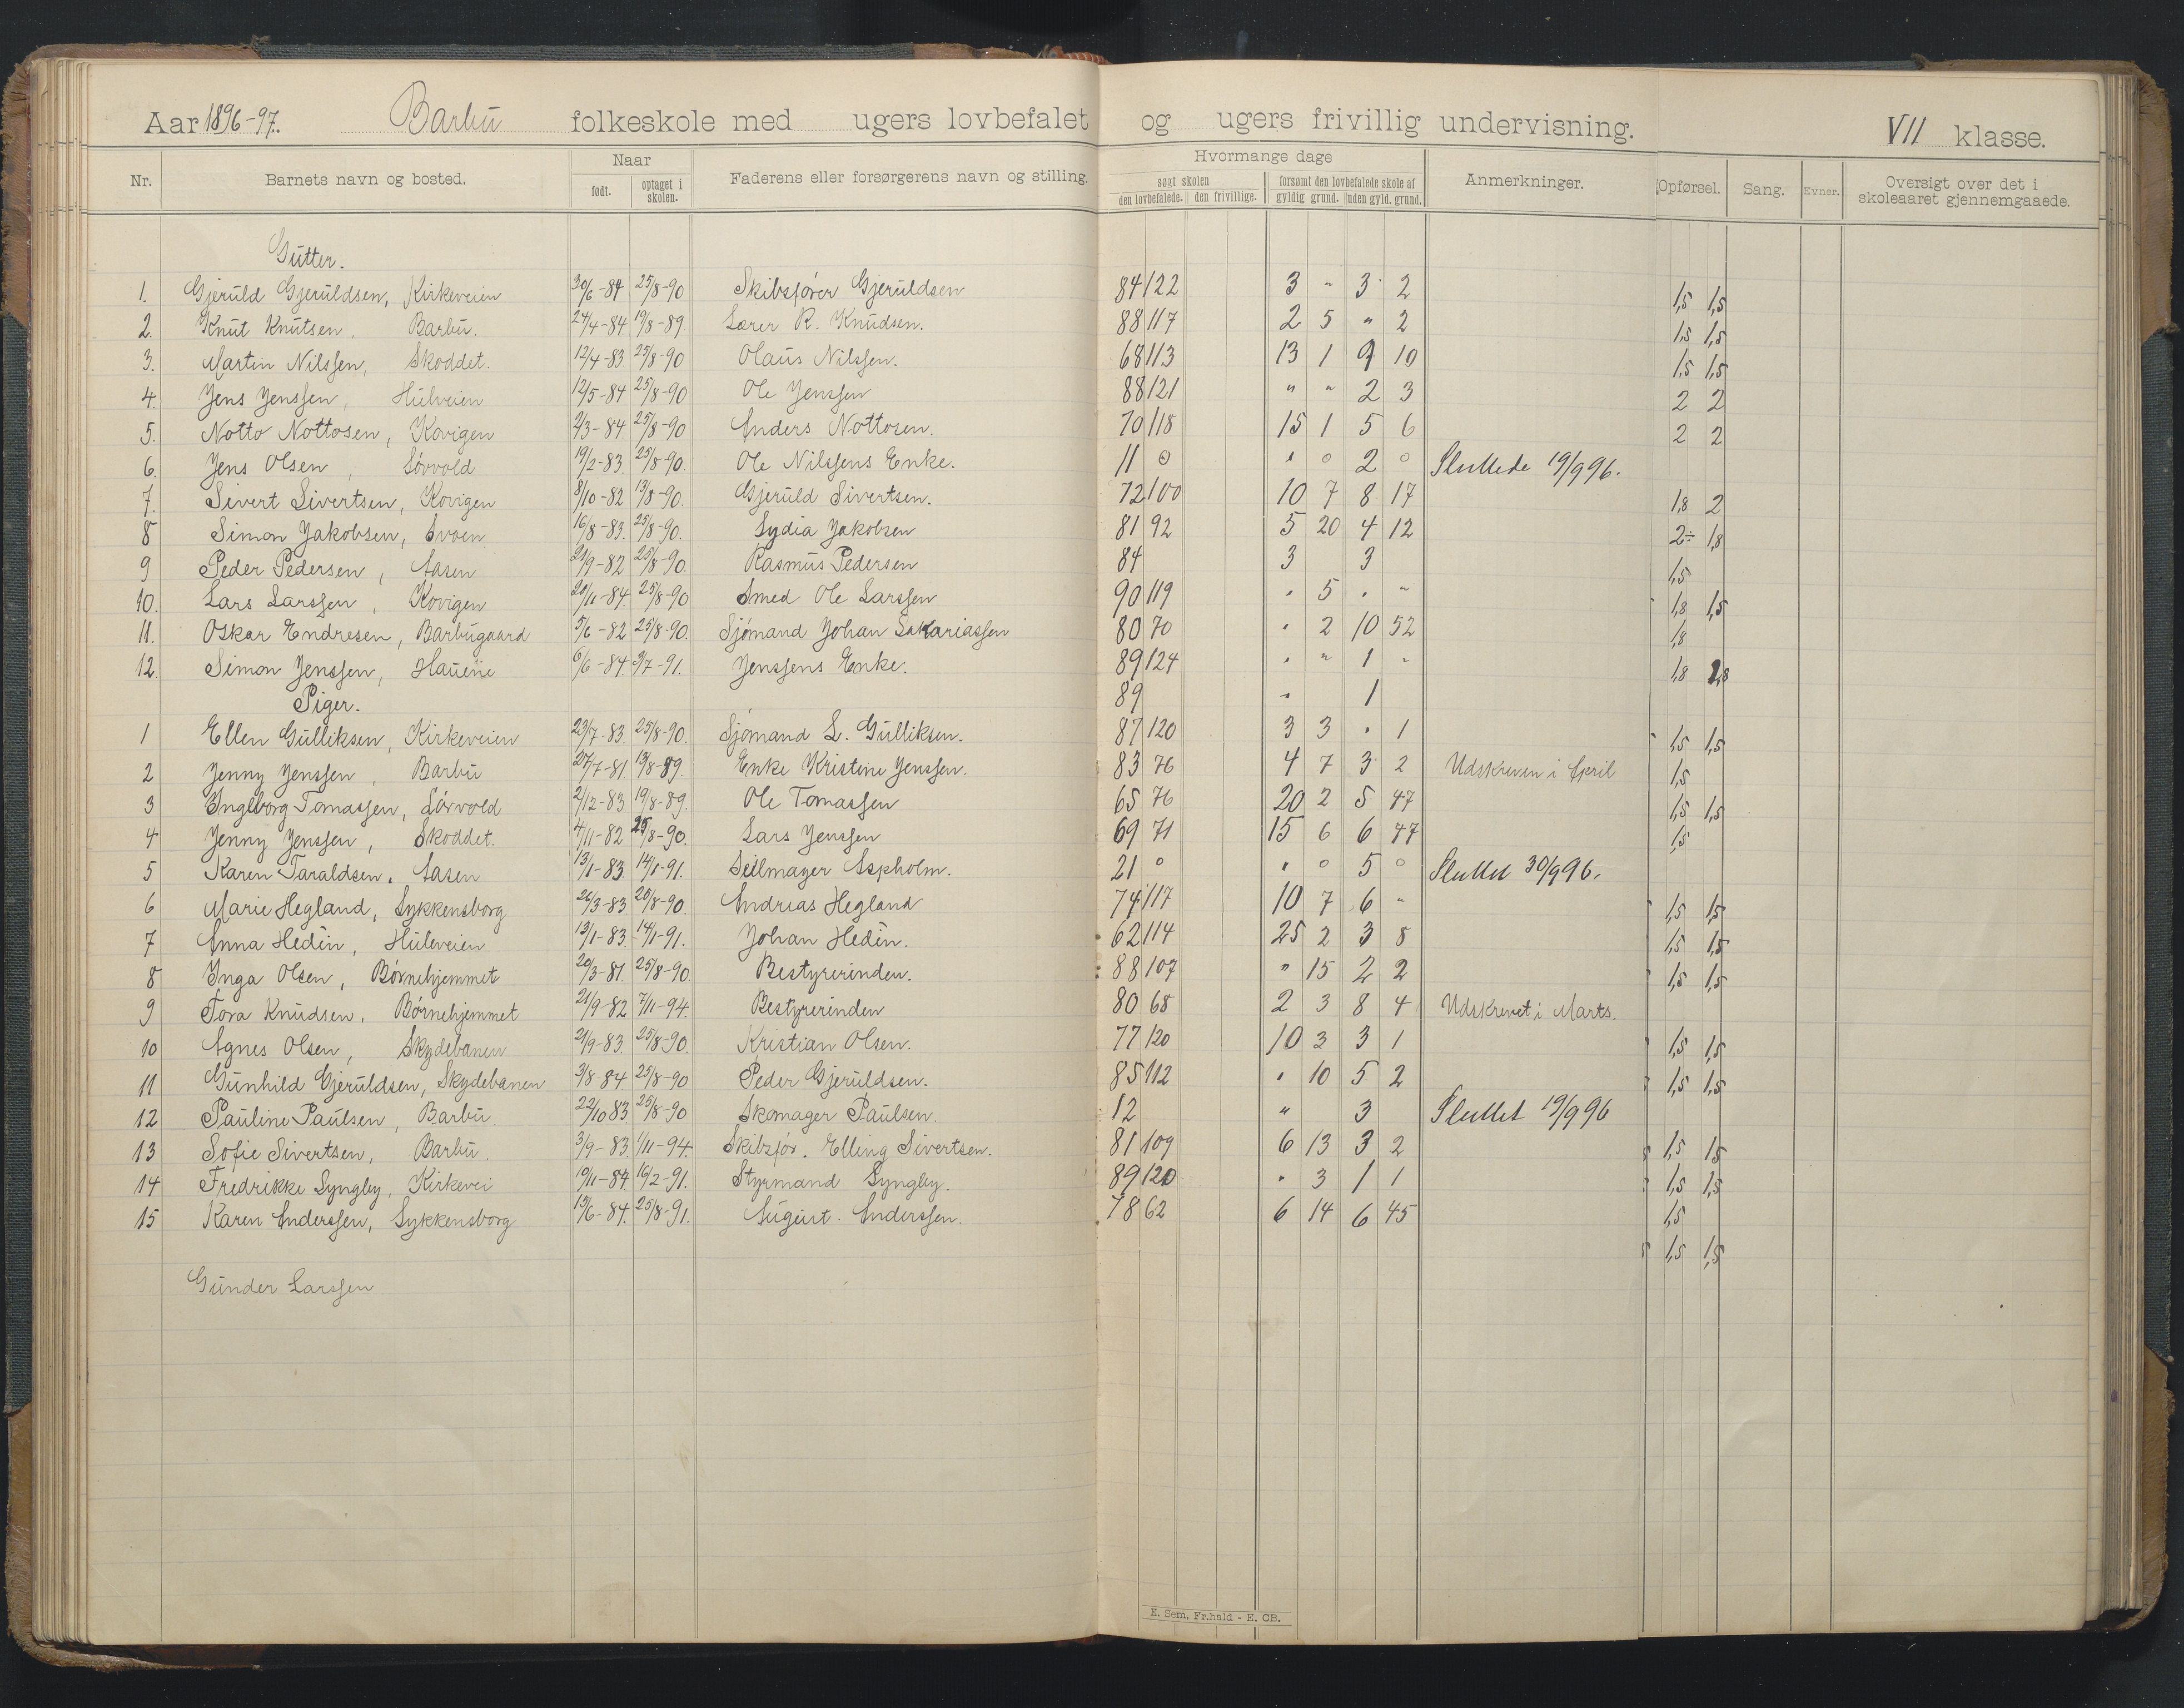 Aar 1896-97. Barbu folkeskole med ugers lovbefalet og ugers frivillig undervisning. VII klasse.
Nr. Barnets navn og bosted. Naar født. optaget i skolen. Faderens eller forsørgerens navn og stilling. Hvormange dage søgt skolen den lovbefalede. den frivillige. forsømt den lovbefalede skole af gyldig grund. uden gyld. grund. Anmerkninger. Opførsel. Sang. Evner. Oversigt over det i skoleaaret gjennemgaaede.
Gutter.
1. Gjeruld Gjeruldsen, Kirkeveien 30/6-84 25/8-90 Skibsfører Gjeruldsen 84 122 3 " 3 2 1,5 1,5
2. Knut Knutsen, Barbu. 24/4-84 19/8-89 Lærer R. Knudsen. 88 117 2 5 " 2 1,5 1,5
3. Martin Nilssen, Skoddet. 12/4-83 25/8-90 Olaus Nilssen. 68 113 13 1 9 10 1,5 1,5
4. Jens Jenssen, Hulveien 12/5-84 25/8-90 Ole Jenssen 88 121 " " 2 3 2 2
5. Notto Nottosen, Kovigen 2/3-84 25/8-90 Anders Nottosen. 70 118 15 1 5 6 2 2
6. Jens Olsen, Sörvold 19/2-83. 25/8-90. Ole Nilssens Enke. 11 0 " 0 2 0 Sluttede 19/9 96.
7. Sivert Sivertsen, Kovigen 8/10-82 13/8-90. Gjeruld Sivertsen. 72 100 10 7 8 17 1,8 2
8 Simon Jakobsen, Svoen 16/8-83. 25/8-90. Lydia Jakobsen 81 92 5 20 4 12 2÷ 1,8
9 Peder Pedersen, Aasen 21/9-82 25/8-90 Rasmus Pedersen 84 3 3 1,5
10. Lars Larssen, Kovigen 20/11-84. 25/8-90 Smed Ole Larssen 90 119 " 5 " " 1,8 1,5
11. Oskar Endresen, Barbugaard 5/6-82 25/8-90. Sjömand Johan Sakariassen 80 70 " 2 10 52 1,8
12. Simon Jenssen, Hauene 6/6-84. 9/7-91. Jenssens Enke. 89 124 " " 1 " 1,8 1,8
Piger. 89 " 1
1 Ellen Gulliksen, Kirkeveien 23/7-83. 25/8-90. Sjömand L. Gulliksen. 87 120 3 3 " 1 1,5 1,5
2 Jenny Jenssen, Barbu 27/7-81 13/8-89. Enke Kristine Jenssen. 83 76 4 7 3 2 Udskreven i April 1,5
3 Ingeborg Tomassen, Sörvold 2/12-83. 19/8-89. Ole Tomassen 65 76 20 2 5 47 1,5 1,5
4 Jenny Jenssen, Skoddet. 4/11-82 25/8-90. Lars Jenssen 69 71 15 6 6 47 1,5
5 Karen Taraldsen, Aasen 13/1-83. 14/1-91. Seilmager Aspholm. 21 0 " 0 5 0 Sluttet 30/9 96.
6 Marie Hegland, Lykkensborg 26/3-83 25/8-90. Andreas Hegland 74 117 10 7 6 " 1,5 1,5
7 Anna Hedin, Huleveien 13/1-83. 14/1-91. Johan Hedin. 62 114 25 2 3 8 1,5 1,5
8 Inga Olsen, Börnehjemmet 20/3-81 25/8-90. Bestyrerinden. 88 107 " 15 2 2 1,5 1,5
9 Tora Knudsen, Börnehjemmet 21/9-82 7/11-94. Bestyrerinden 80 68 2 3 8 4 Udskrevet i Marts.
10 Agnes Olsen, Skydebanen 21/9-83. 25/8-90. Kristian Olsen. 77 120 10 3 3 1 1,5 1,5
11 Gunhild Gjeruldsen, Skydebanen 3/8 84 25/8-90 Peder Gjeruldsen. 85 112 " 10 5 2 1,5 1,5
12 Pauline Paulsen, Barbu 22/10 83. 25/8-90 Skomager Paulsen. 12 " 3 Sluttet 19/9 96
13 Sofie Sivertsen, Barbu. 3/9-83. 1/11-94. Skibsför. Elling Sivertsen. 81 109 6 13 3 2 1,5 1,5
14 Fredrikke Lyngby, Kirkevei 10/11-84 16/2-91. Styrmand Lyngby. 89 120 " 3 1 1 1,5 1,5
15 Karen Anderssen, Lykkensborg 13/6-84. 25/8-91. August Anderssen. 78 62 6 14 6 45 1,5
1,5 1,5
Gunder Larssen
E. Sem, Fr.hald - E. CB.